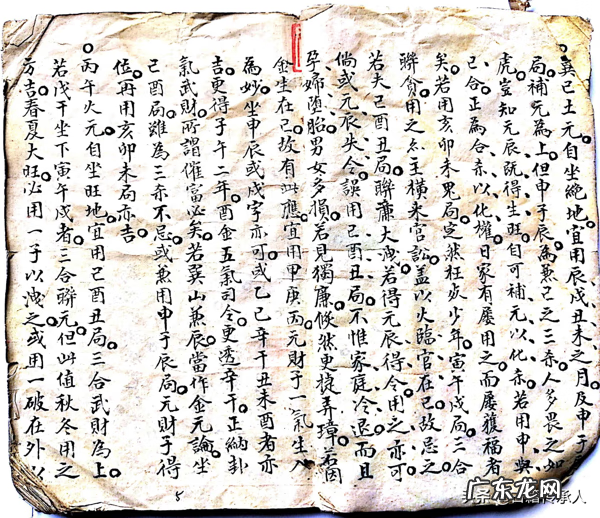 巽巳土元自坐絶地宜用辰戌丑未之月及申子
局補元為上但申子辰為兼巳之三杀人多畏之如
虎豈知元辰既得生旺自可補元以化杀若用申與
巳合正為合杀以化權日家有屡用之而屡獲福者
矣若用亥卯未鬼局定然枉死少年寅午戌局三合
聯貪用之亦主橫来官訟盖以火臨官在巳故忌之
若夫巳酉丑局聯廉大凶若得元辰得令用之亦可
倘或元辰失令誤用巳酉丑局不惟家庭冷退而且
孕婦堕胎男女多損若見獨廉倏然更捷弄璋若因
金生在巳故有此應宜用甲庚丙元財子一氣生入
為妙坐申辰或戌字亦可或乙巳辛干丑未酉者亦
吉更得子午二年酉金五氣司令更透辛干正納卦
氣武財所謂催富必矣若巽山兼辰當作金元論坐
巳酉局雖為三杀不忌或兼用申子辰局元財子得
位再用亥卯未局亦吉
丙午火元自坐旺地宜用巳酉丑局三合武財為上
若戊干坐下寅午戌者三合聯元但此值秋冬用之
方吉春夏大旺必用一子以洩之或用一破在外以
5
广东龙网